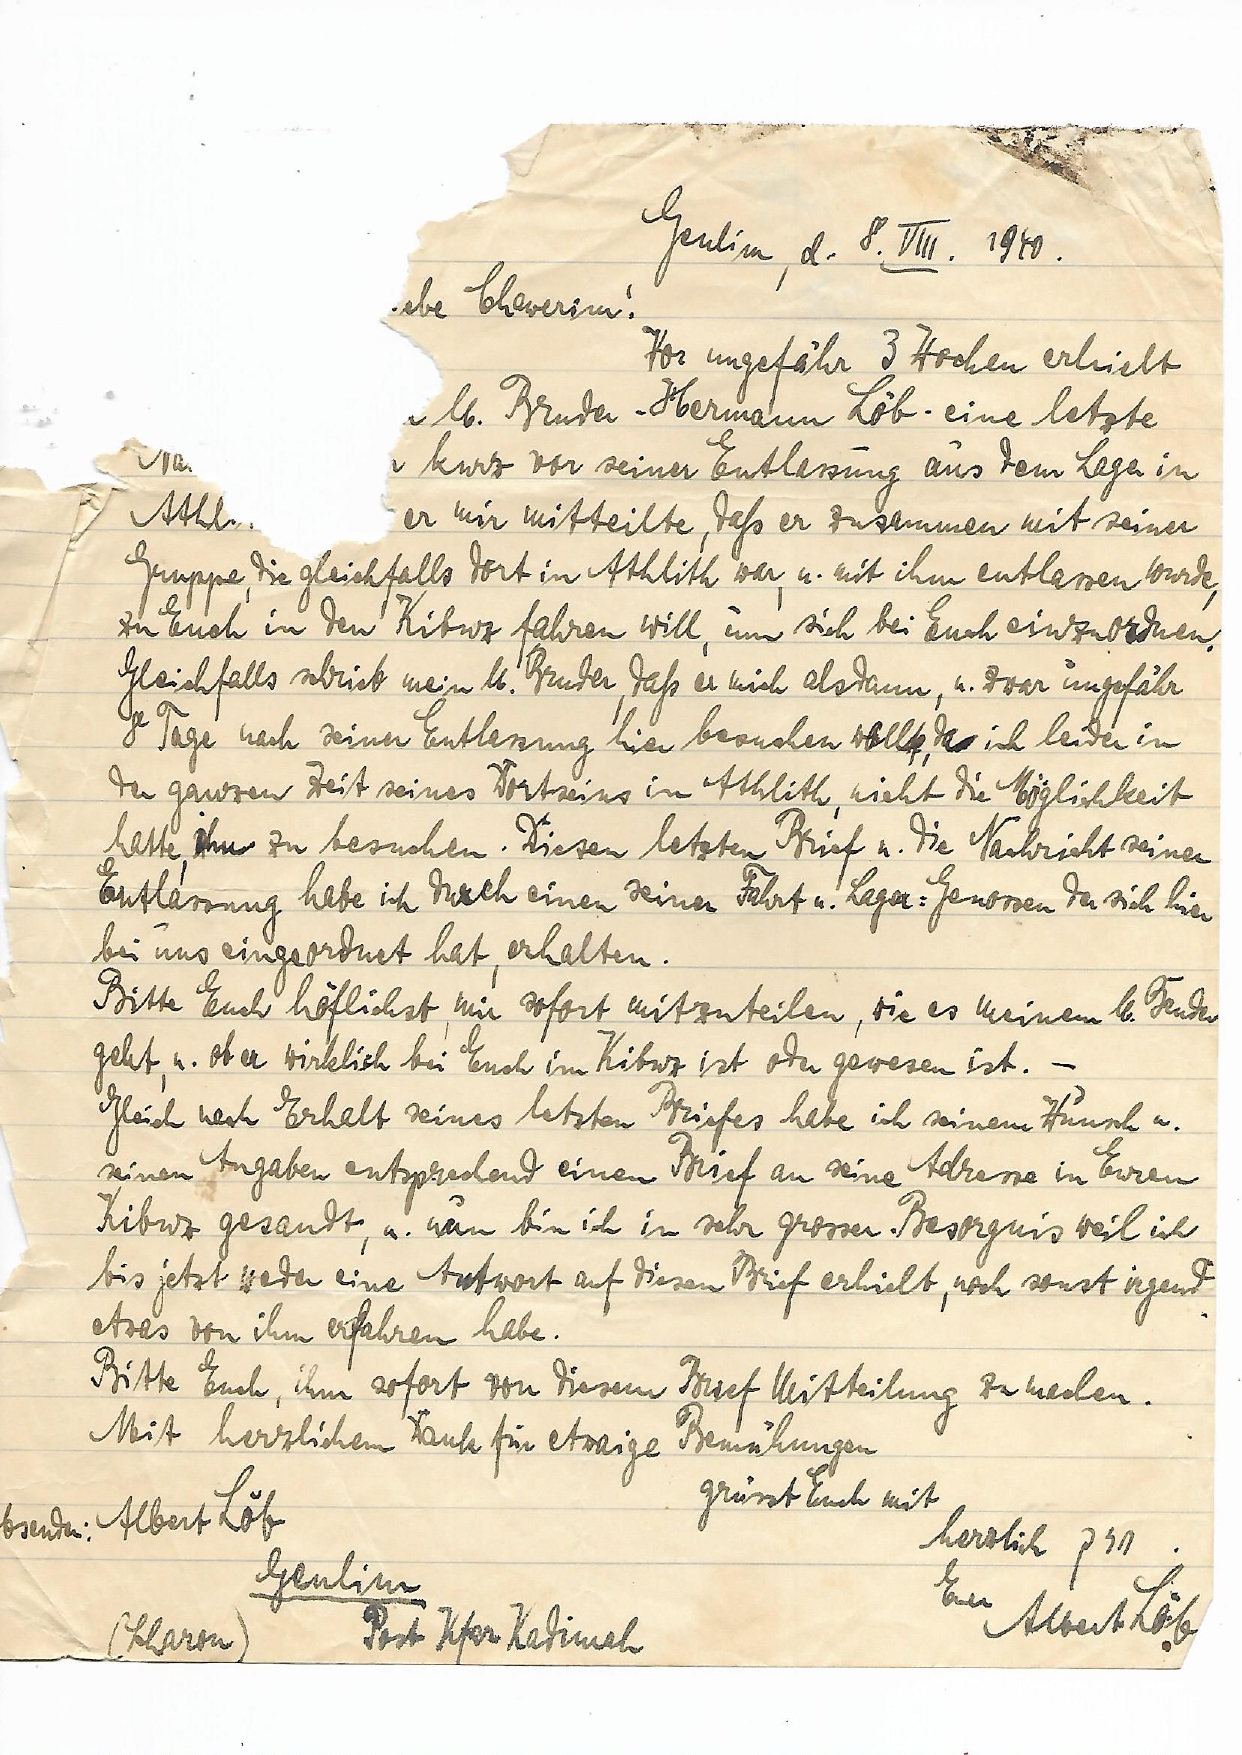 Geulim, d. 8. VIII. 1940.
ebe Chawerim!
Vor ungefähr 3 Wochen erhielt
lb. Bruder - Hermann Löb - eine letzte
kurz vor seiner Entlassung aus dem Lager in
Athl er mir mitteilte, daß er zusammen mit seiner
Gruppe, die gleichfalls dort in Athlith war, u. mit ihm entlassen wurde,
zu Euch in den Kibuz fahren will, um sich bei Euch einzuordnen.
Gleichfalls schrieb mein lb. Bruder, daß er mich alsdann, u. zwar ungefähr
8 Tage nach seiner Entlassung hier besuchen wollte, da ich leider in
der ganzen Zeit seines Dortseins in Athlith, nicht die Möglichkeit
hatte, ihn zu besuchen. Diesen letzten Brief u. die Nachricht seiner
Entlassung habe ich durch einen seiner Fahrt u. Lager=Genossen der sich hier
bei uns eingeordnet hat, erhalten.
Bitte Euch höflichst, mir sofort mitzuteilen, wie es meinem lb. Bruder
geht, u. ob er wirklich bei Euch im Kibuz ist oder gewesen ist. —
Gleich nach Erhalt seines letzten Briefes habe ich seinem Wunsch u.
seinen Angaben entsprechend einen Brief an seine Adresse in Euren
Kibuz gesandt, u. nun bin ich in sehr grosser Besorgnis weil ich
bis jetzt weder eine Antwort auf diesen Brief erhielt, noch sonst irgend
etwas von ihm erfahren habe.
Bitte Euch, ihm sofort von diesem Brief Mitteilung zu machen.
Mit herzlichem Dank für etwaige Bemühungen
grüsst Euch mit
herzlich חזק
Euer
Albert Löb
bsender: Albert Löb
Geulim
(Sharon) Post Kfar Kadimah